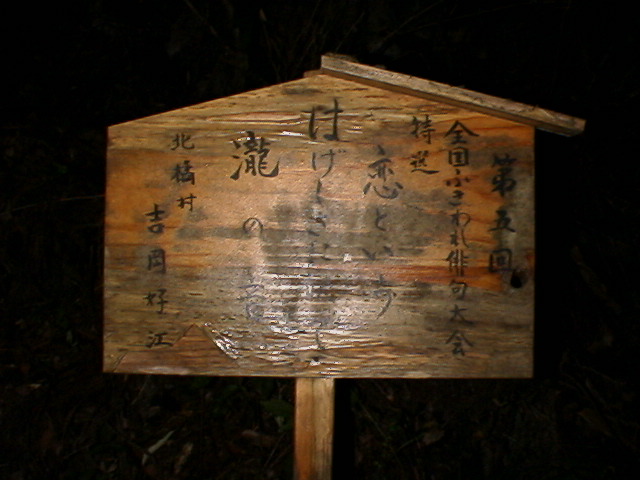 第五回
全国ふきわれ俳句大会
特選
恋という
はげしさに
瀧の音
北橘村
吉岡好江